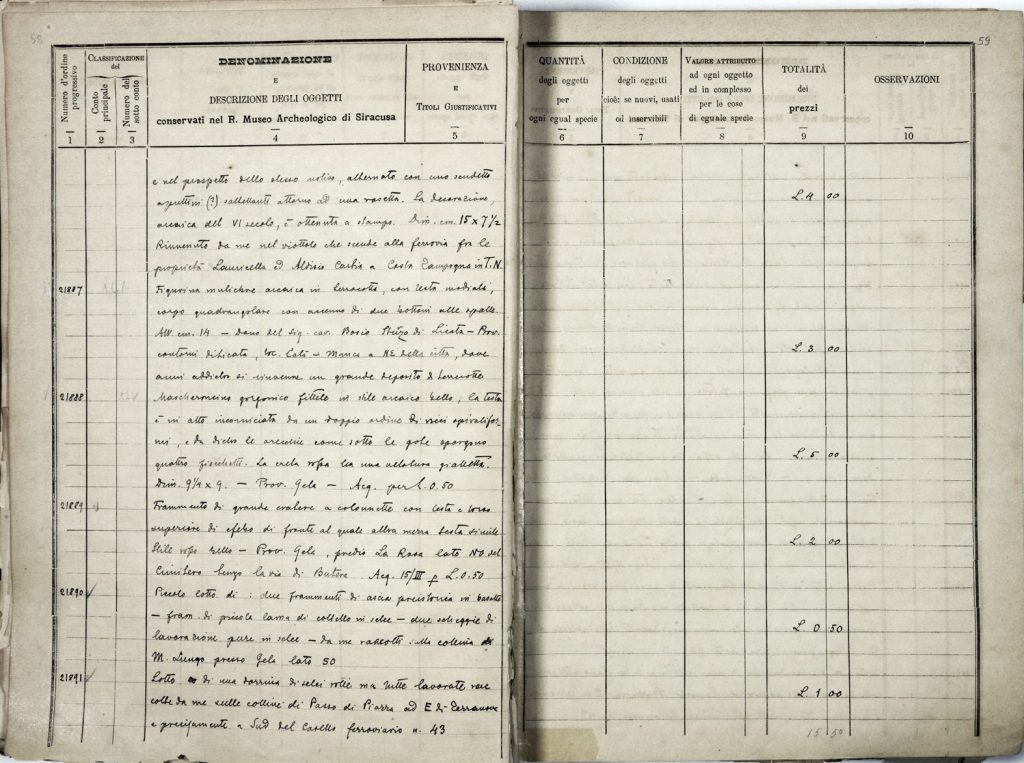 58
Numero d'ordine progressivo
CLASSIFICAZIONE del
Conto principale
Numero del sotto conto
DENOMINAZIONE
E
DESCRIZIONE DEGLI OGGETTI
conservati nel R. Museo Archeologico di Siracusa
PROVENIENZA
E
TITOLI GIUSTIFICATIVI
1 2 3 4 5
e nel prospetto dello stesso motivo, alternato con uno scudetto
a puttini (?) saltellanti attorno ad una rosetta. La decorazione,
arcaica del VI secolo, è ottenuta a stampo. Dim. cm. 15 x 7 1/2
Rinvenuto da me nel viottolo che scende alla ferrovia fra le
proprietà Lauricella ed Aldisio Carbio a Costa Zampogna in T. N.
21887 Figurina muliebre arcaica in terracotta, con testa modiata,
corpo quadrangolare con accenno di due bottoni alle spalle.
Alt. cm. 14 — Dono del Sig. cav. Bosio di Licata — Prov.
contorni di Licata, a NE della città, dove
anni addietro si rinvenne un grande deposito di terrecotte
21888 Mascheroncino gorgonico fittile in stile arcaico bello; la testa
è in alto incorniciata da un doppio ordine di ricci spiraliformi
, e da dietro le orecchie come sotto le gote sporgono
quattro fiocchetti. La creta rossa ha una velatura gialletta.
Dim. 9 1/2 x 9. — Prov. Gela — Acq. per L. 0.50
21889 Frammento di grande cratere a colonnette con testa e torso
superiore di efebo di fronte al quale altra mezza testa simile
Stile rosso bello — Prov. Gela, predio La Rosa lato NO del
Cimitero lungo la via di Butera. Acq. 15/III p L. 0.50
21890 Piccolo lotto di : due frammenti di ascia preistorica in basalto
— fram. di piccola lama di coltello in selce — due scheggie di
lavorazione pure in selce — da me raccolti sulla collina di
M. Lungo presso Gela lato SO
21891 Lotto di una dozzina di selci rotte ma tutte lavorate rac
colte da me sulle colline di Passo di Piazza ad E di Terranova
e precisamente a Sud del Casello ferroviario n. 43
59
QUANTITÀ
degli oggetti
per
ogni egual specie
CONDIZIONE
degli oggetti
cioè: se nuovi, usati
od inservibili
VALORE ATTRIBUITO
ad ogni oggetto
ed in complesso
per le cose
di eguale specie
TOTALITÀ
dei
prezzi
OSSERVAZIONI
6 7 8 9 10
L. 4 00
L. 3 00
L. 5 00
L. 2 00
L. 0 50
L. 1 00
15 50